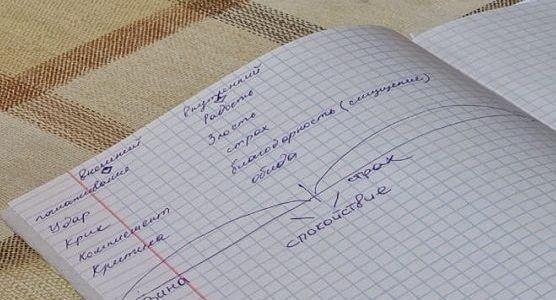 внешний
поглаживание
Удар
Крик
Комплимент
Критика
внутренний
Радость
Злость
страх
благодарность (смущение)
обида
страх
спокойствие